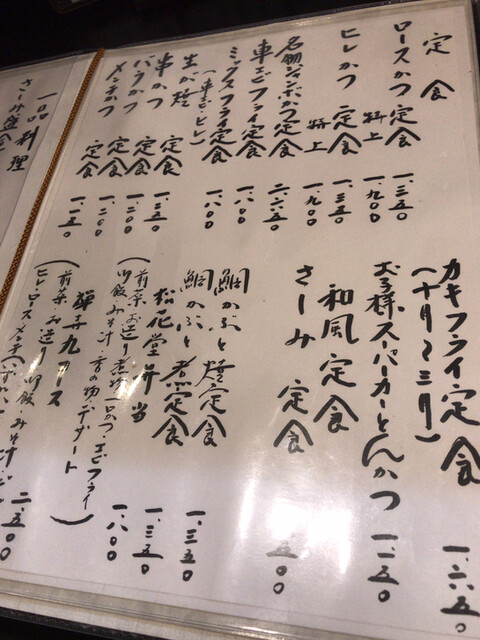 定食
ロースかつ定食 一、三五〇
特上 一、九〇〇
ヒレかつ定食 一、三五〇
特上 一、九〇〇
定食 二、六五〇
車えびフライ定食 一、八〇〇
ミックスフライ定食 一、八〇〇
(車えび・ヒレ)
生が焼定食 一、三五〇
串かつ定食 一、二〇〇
バラかつ定食 一、二〇〇
メンチかつ定食 一、一五〇
カキフライ定食 一、六五〇
(十月〜三月)
お子様スーパーカーとんかつ 一、二五〇
和風定食
さしみ定食 五〇〇
鯛かぶと焼定食
鯛かぶと煮定食 一、三五〇
松花堂弁当 一、三五〇
(前菜・お造り・煮物・一口かつ・えびフライ
御飯・みそ汁・香の物・デザート) 一、八〇〇
コース 二、五〇〇
(前菜・お造り・御飯・みそ汁
ヒレ・ロース・メンチ
一品料理
さしみ盛合